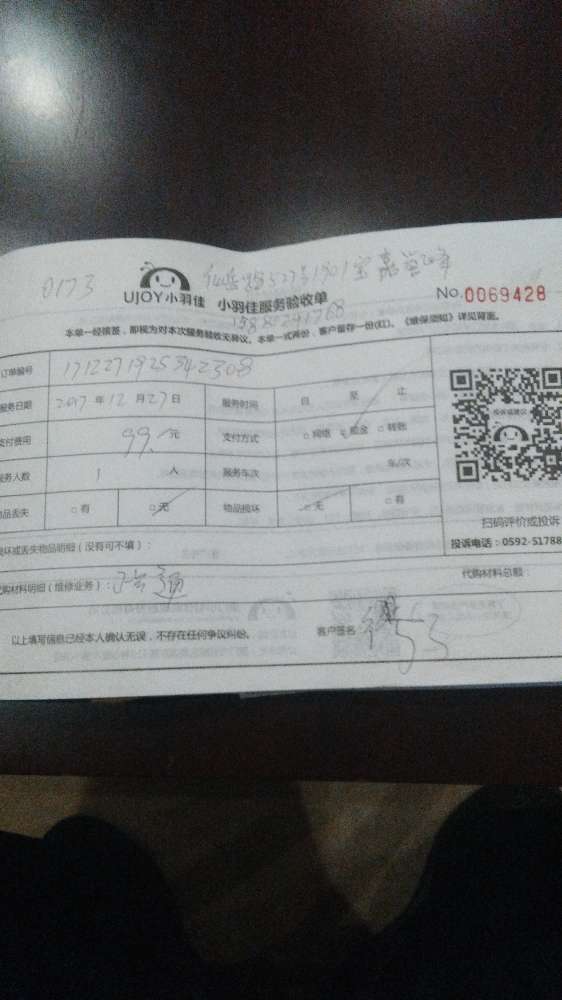 0173
UJOY小羽佳 小羽佳服务验收单 No.0069428
本单一经填签，即视为对本次服务验收无异议。本单一式两份，客户留存一份(红)。《维保须知》详见背面。
订单编号 17122719253942308
服务日期 2017 年 12 月 27 日 服务时间 自 至 止
支付费用 99. 元 支付方式 □网络 □现金 □转账
服务人数 1 人 服务车次 车/次
物品丢失 □有 □无 物品损坏 □无 □有
投诉或建议
扫码评价或投诉
投诉电话：0592-51788
损坏或丢失物品明细（没有可不填）：
代购材料明细（维修业务）： 代购材料总额：
以上填写信息已经本人确认无误，不存在任何争议纠纷。 客户签名